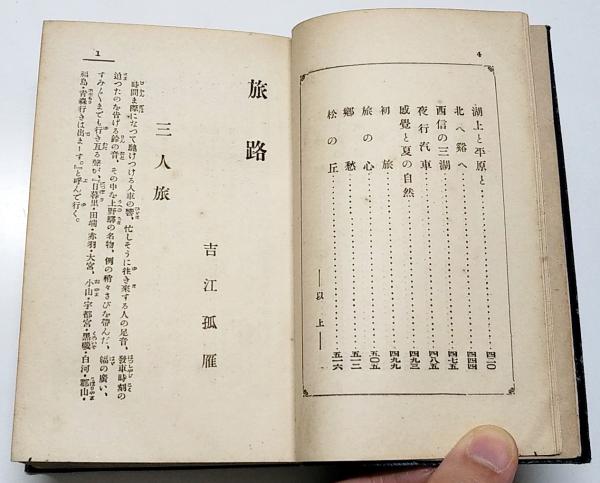 4
湖上と平原と……四二〇
北へ谿へ……四四四
西信の三湖……四七五
夜行汽車……四八五
感覺と夏の自然……四九三
初旅……四九九
旅の心……五〇五
鄕愁……五一二
松の丘……五一六
——以上——
1
旅路
吉江孤雁
三人旅
時間ま際になつて駈けつける人車の響、忙しそうに往き來する人の足音、發車時刻の
迫つたのを告げる鈴の音、その中を上野驛の名物、例の稍々さびを帶んだ、幅の廣い、
すみ〴〵までも行き亙る聲が、『日暮里・田端・赤羽・大宮、小山・宇都宮・黑磯・白河・郡山・
福島・靑森行きは出まーす。』と呼んで行く。